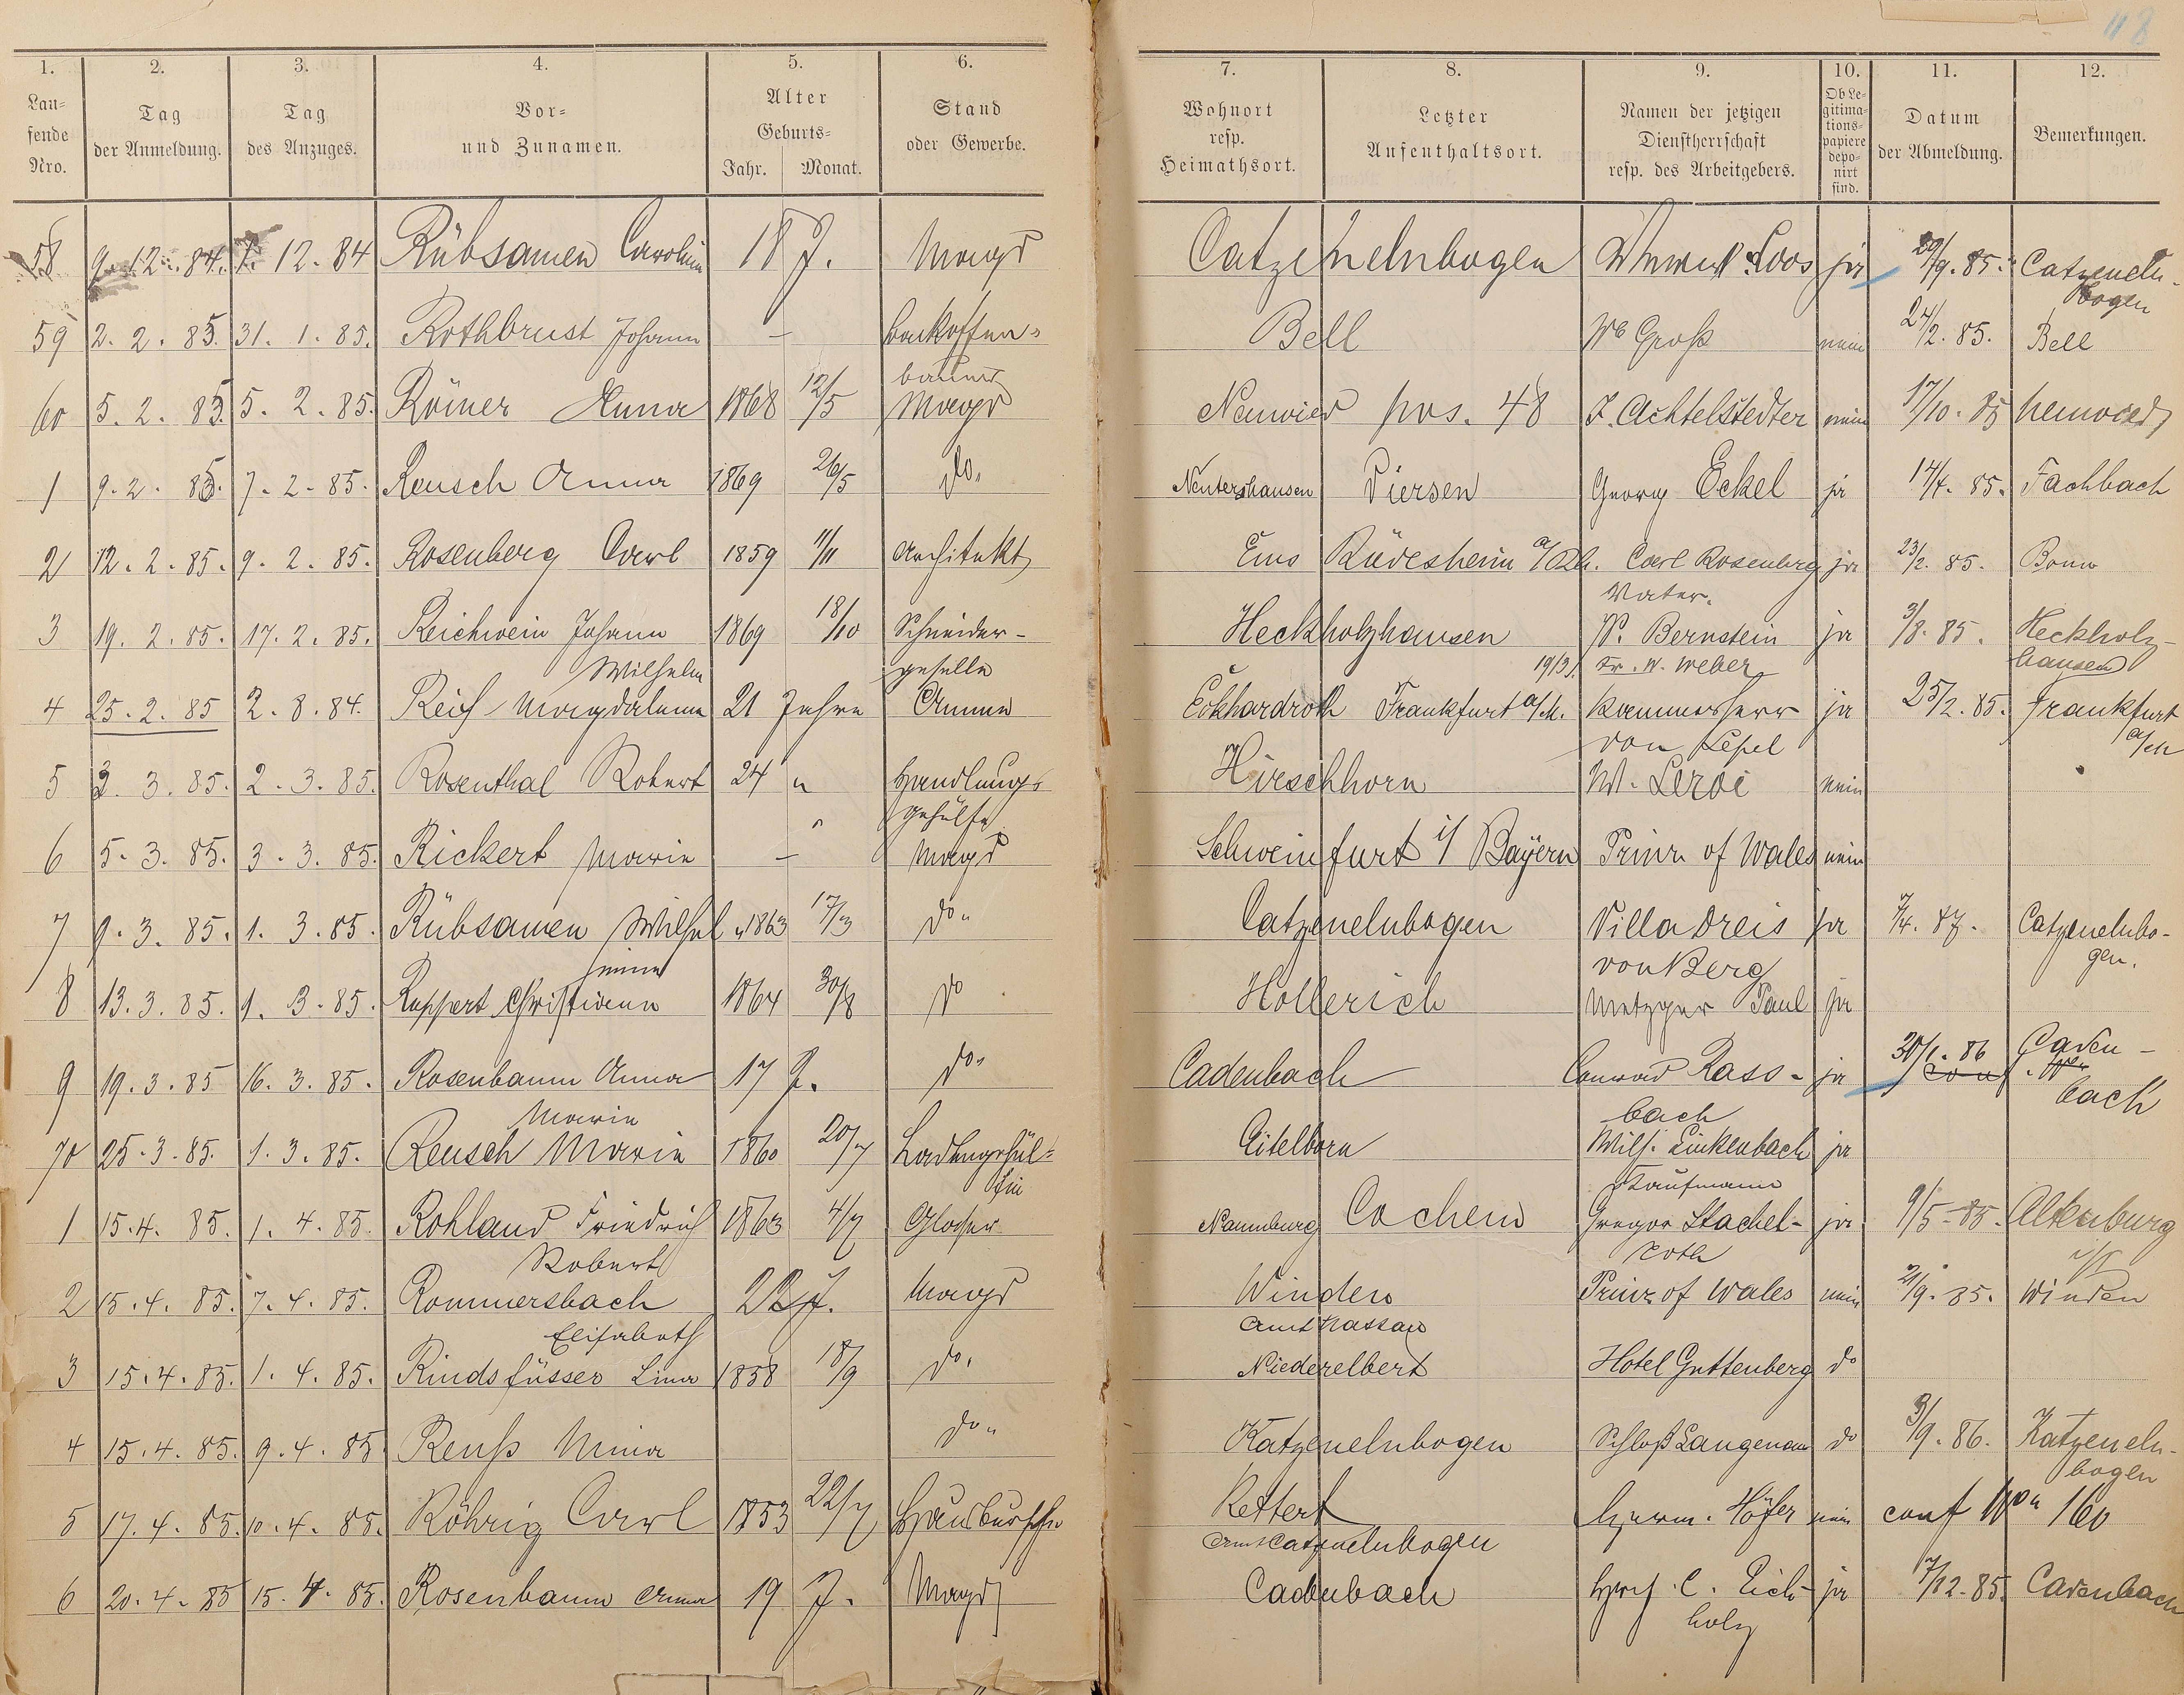 118
1. 2. 3. 4. 5. 6. 7. 8. 9. 10. 11. 12.
Lau-
fende
Nro.
Tag
der Anmeldung.
Tag
des Anzuges.
Vor-
und Zunamen.
Alter
Geburts-
Jahr. Monat.
Stand
oder Gewerbe.
Wohnort
resp.
Heimathsort.
Letzter
Aufenthaltsort.
Namen der jetzigen
Dienstherrschaft
resp. des Arbeitgebers.
Ob Le-
gitima-
tions-
papiere
depo-
nirt
sind.
Datum
der Abmeldung.
Bemerkungen.
58 9. 12. 84. 12. 84 Rübsamen Carolin 18 J. Magd Catzenelnbogen Loos ja 29/9. 85. Catzeneln-
bogen
59 2. 2. 85. 31. 1. 85. Rothbrust Johann — Backoffen- Bell Wb Groß nein 24/2. 85. Bell
bauer
60 5. 2. 85. 5. 2. 85. Römer Anna 1868 12/5 Magd Neuwied pos. 48 F. Achtelstedter nein 17/10. 85 Neuwied
1 9. 2. 85. 7. 2. 85. Reusch Anna 1869 26/5 do. Nentershausen Viersen Georg Eckel ja 14/4. 85. Fachbach
2 12. 2. 85. 9. 2. 85. Rosenberg Carl 1859 11/11 Architekt Ems Rüdesheim a/Rh. Carl Rosenberg ja 23/2. 85. Bonn
Vater.
3 19. 2. 85. 17. 2. 85. Reichwein Johann 1869 18/10 Schneider- Heckholzhausen W. Bernstein ja 3/8. 85. Heckholz-
Wilhelm geselle 19/3. Fr. W. Weber hausen
4 25. 2. 85 2. 8. 84. Reif Magdalena 21 Jahre Amme Eckhardroth Frankfurt a/M. Kammerherr ja 25/2. 85. Frankfurt
von Lepel a/M
5 3. 3. 85. 2. 3. 85. Rosenthal Robert 24 " Handlungs- Hirschhorn M. Leroi nein
gehülfe
6 5. 3. 85. 3. 3. 85. Rickert Marie — Magd Schweinfurt i/ Bayern Prinz of Wales nein
7 9. 3. 85. 1. 3. 85. Rübsamen Wilhel- 1863 17/3 do. Catzenelnbogen Villa Dreis ja 7/4. 87. Catzenelnbo-
mine von Berg gen.
8 13. 3. 85. 1. 3. 85. Ruppert Christiane 1864 30/8 do Hollerich Metzger Paul ja
9 19. 3. 85 16. 3. 85. Rosenbaum Anna 17 J. do. Cadenbach Conrad Rass- ja 30/1. 86 Caden-
Marie bach conf. bach
70 25. 3. 85. 1. 3. 85. Reusch Marie 1860 20/7 Ladengehül- Eitelborn Wilh. Linkenbach ja
fin Kaufmann
1 15. 4. 85. 1. 4. 85. Rohland Friedrich 1863 4/7 Glaser Naumburg Cochem Gregor Stachel- ja 9/5. 85. Altenburg
Robert roth
2 15. 4. 85. 7. 4. 85. Rommersbach 22 J. Magd Winden Prinz of Wales nein 21/9. 85. Winden
Elisabeth Amt Nassau
3 15. 4. 85. 1. 4. 85. Rindsfüsser Lina 1858 18/9 do. Niederelbert Hotel Guttenberg do
4 15. 4. 85. 9. 4. 85 Reuß Mina do. Katzenelnbogen Schloß Langenau do 3/9. 86. Katzeneln-
bogen
5 17. 4. 85. 10. 4. 85. Röhrig Carl 1853 22/7 Hausbursche Rettert Herm. Höfer nein conf No 160
Amt Catzenelnbogen
6 20. 4. 85 15. 4. 85. Rosenbaum Anna 19 J. Magd Cadenbach C. Eich- ja 7/12. 85. Cadenbach
holz